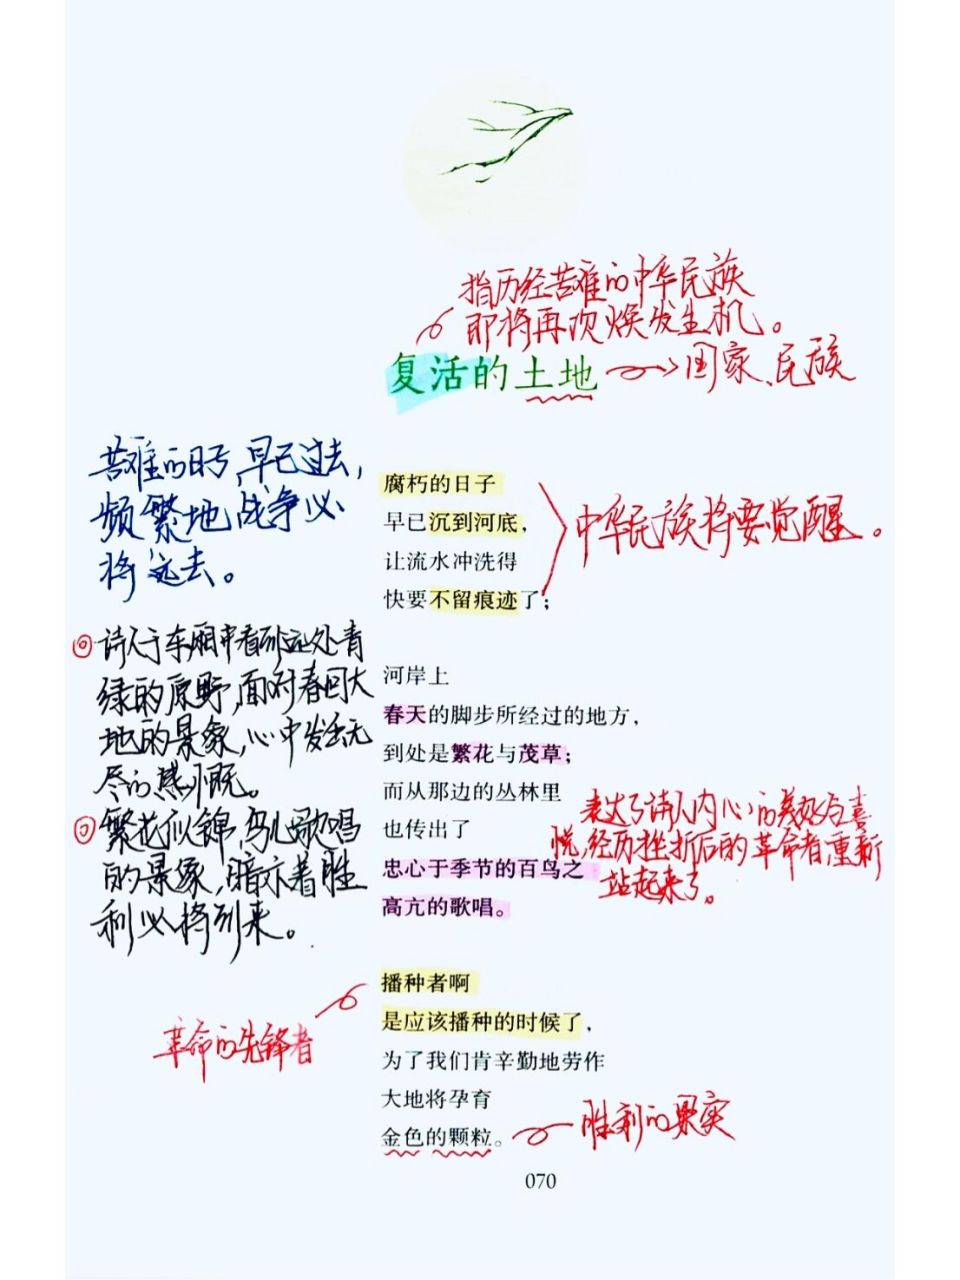 指历经苦难的中华民族
即将再次焕发生机。
复活的土地
国家、民族
苦难的日子,早已过去,
频繁地战争必
将远去。
腐朽的日子
早已沉到河底，
让流水冲洗得
快要不留痕迹了；
中华民族将要觉醒。
①诗人于车厢中看到远处青
绿的原野,面对春回大
地的景象,心中发出无
尽的感慨。
②繁花似锦,鸟儿歌唱
的景象,暗示着胜
利必将到来。
河岸上
春天的脚步所经过的地方，
到处是繁花与茂草；
而从那边的丛林里
也传出了
忠心于季节的百鸟之
高亢的歌唱。
表达了诗人内心的美好与喜
悦,经历挫折后的革命者,重新
站起来了。
播种者啊
是应该播种的时候了，
为了我们肯辛勤地劳作
大地将孕育
金色的颗粒。
革命的先锋者
胜利的果实
070